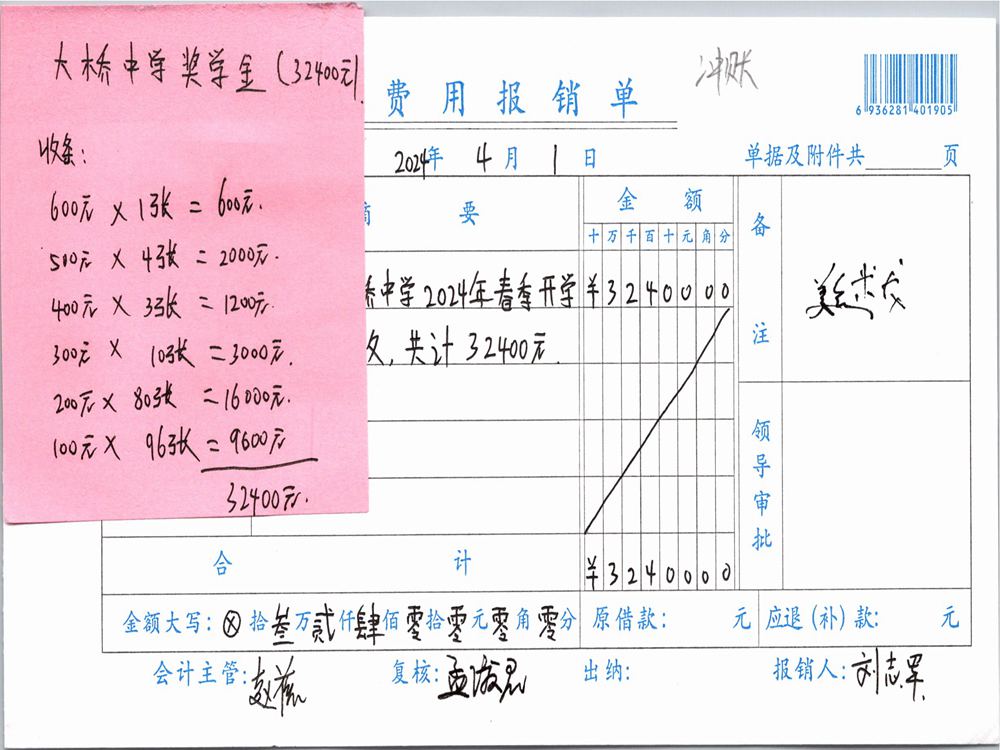 大桥中学奖学金(32400元)
收条:
600元 × 1张 = 600元.
500元 × 4张 = 2000元.
400元 × 3张 = 1200元.
300元 × 10张 = 3000元.
200元 × 80张 = 16000元.
100元 × 96张 = 9600元
32400元.
费用报销单
冲账
6 936281 401905
2024年 4月 1日
单据及附件共 页
摘 要
金 额
十 万 千 百 十 元 角 分
备
注
桥中学2024年春季开学
¥3240000
,共计32400元.
领
导
审
批
合 计
¥3240000
金额大写: ⊗ 拾 叁 万 贰 仟 肆 佰 零 拾 零 元 零 角 零 分
原借款: 元
应退(补)款: 元
会计主管:
复核:
出纳:
报销人: 刘志军